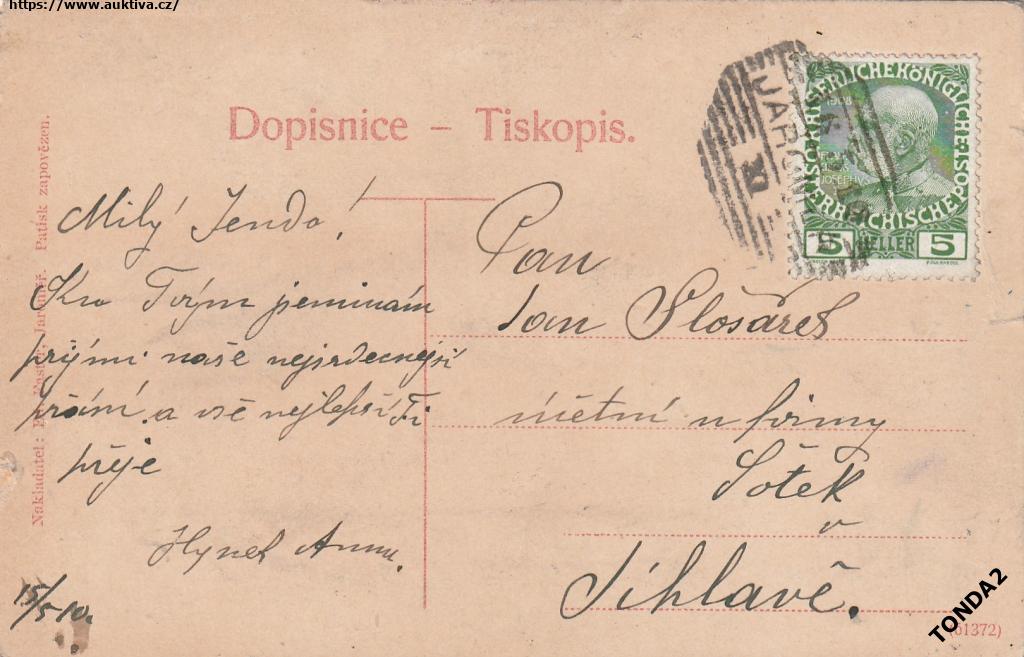 https://www.auktiva.cz/
Dopisnice – Tiskopis.
Milý Jendo!
Tvým jmeninám
přijmi naše nejsrdečnější
přání a vše nejlepší Ti
přeje
Hynek Anna.
15/5 10.
Pan
Jan Slosárek
účetní u firmy
Šotek
v
Jihlavě.
5 HELLER 5
1908
Nakladatel: Jaroměř. Patisk zapovězen.
(61372)
TONDA2